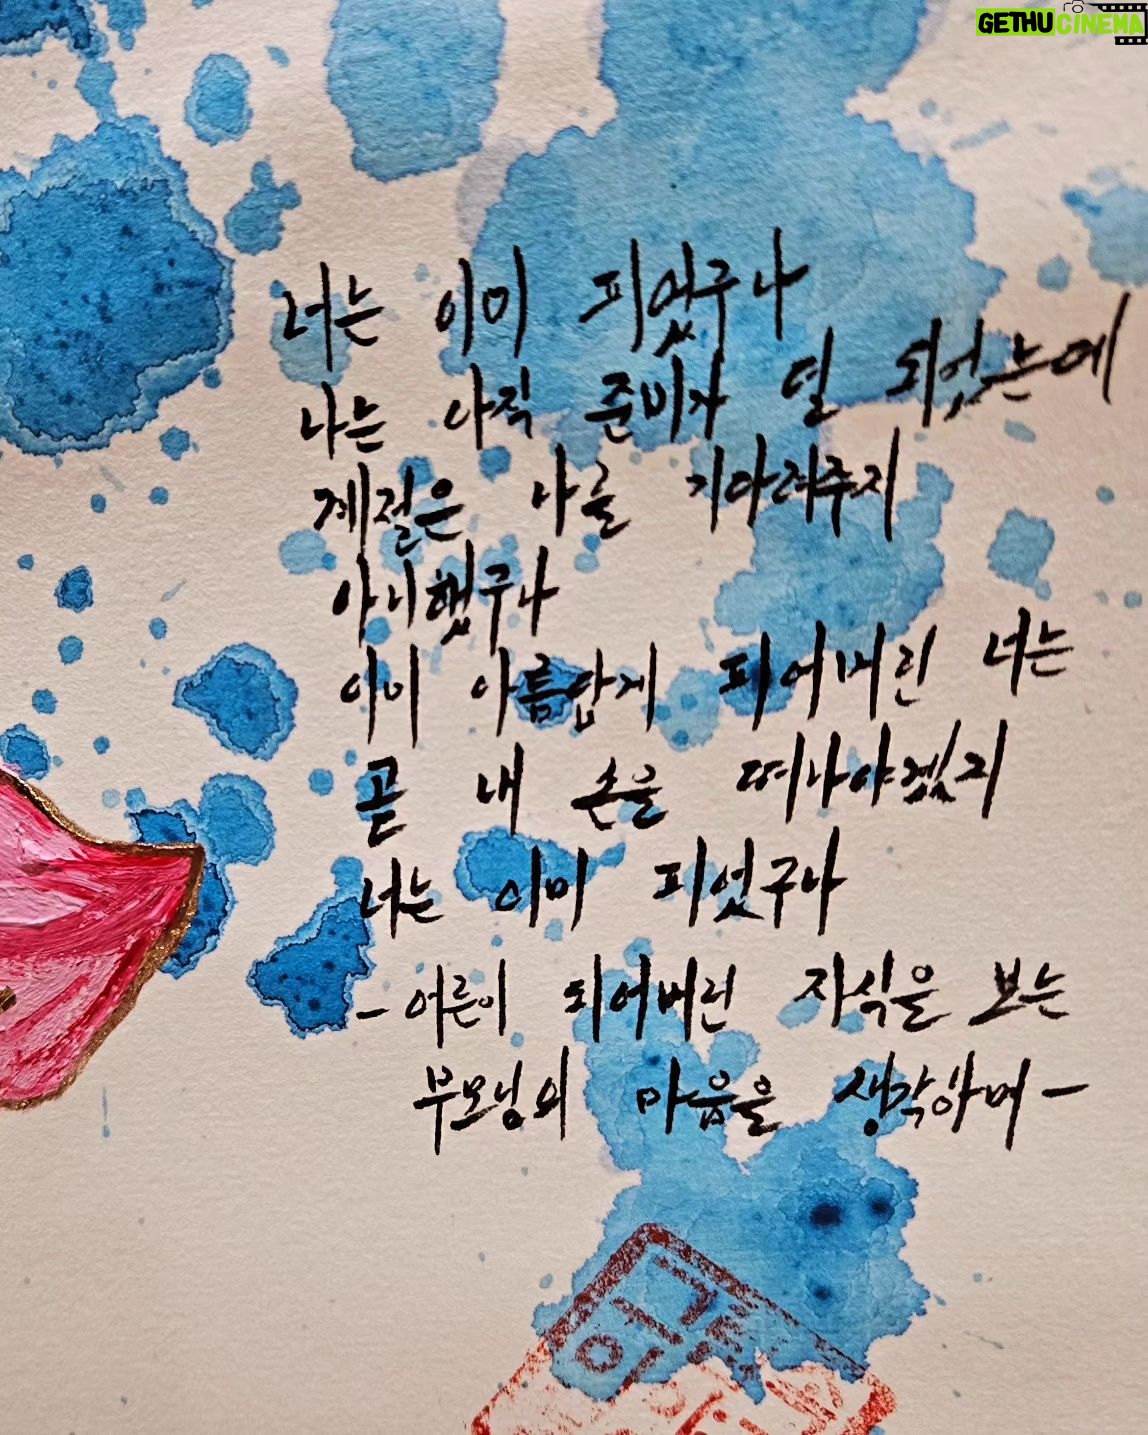 GETHUCINEMA
너는 이미 피었구나
나는 아직 준비가 덜 되었는데
계절은 나를 기다려주지
아니했구나
이미 아름답게 피어버린 너는
곧 내 손을 떠나야겠지
너는 이미 피었구나
- 어른이 되어버린 자식을 보는
부모님의 마음을 생각하며 -